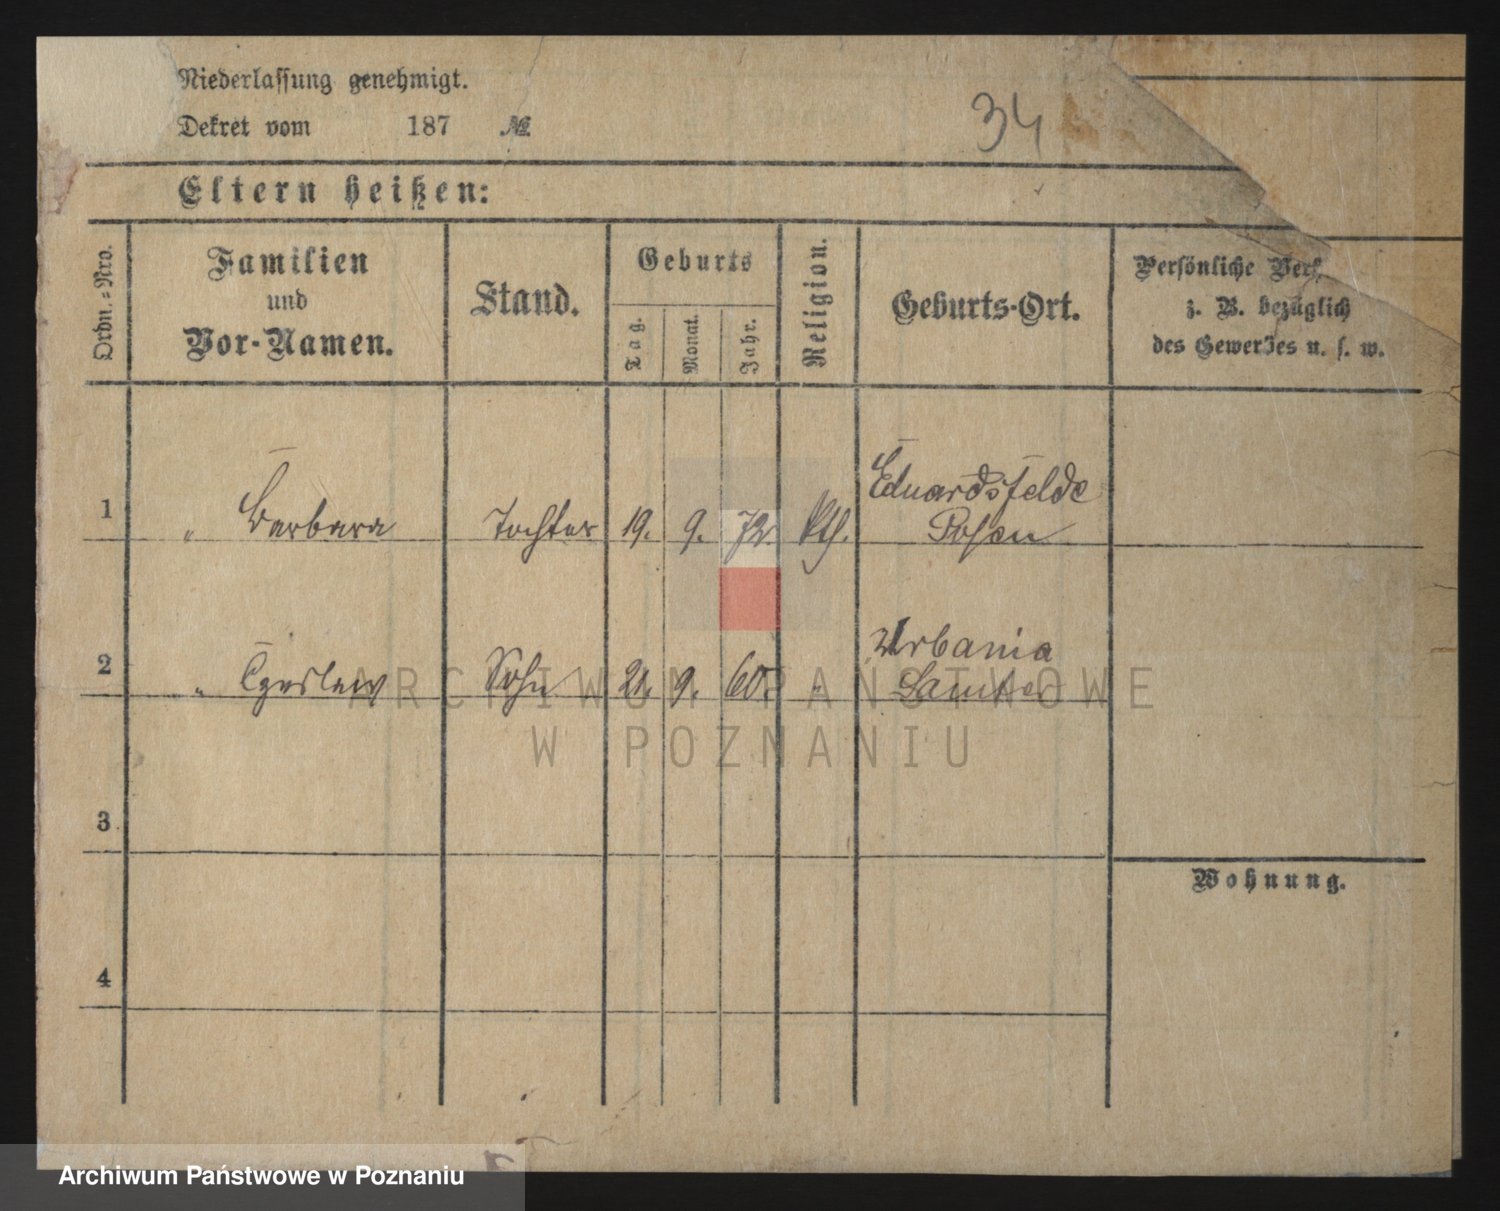 Niederlassung genehmigt.
Dekret vom 187 №
34
Eltern heißen:
Ordn.=Nro.
Familien
und
Vor-Namen.
Stand.
Geburts
Tag.
Monat.
Jahr.
Religion.
Geburts-Ort.
Persönliche Verh
z. B. bezüglich
des Gewerbes u. s. w.
1 " Barbara Tochter 19. 9. 72. kth. Eduardsfelde
Posen
2 " Czeslaw Sohn 21. 9. 60. " Urbania
Samter
ARCHIWUM PAŃSTWOWE
W POZNANIU
3
Wohnung.
4
Archiwum Państwowe w Poznaniu